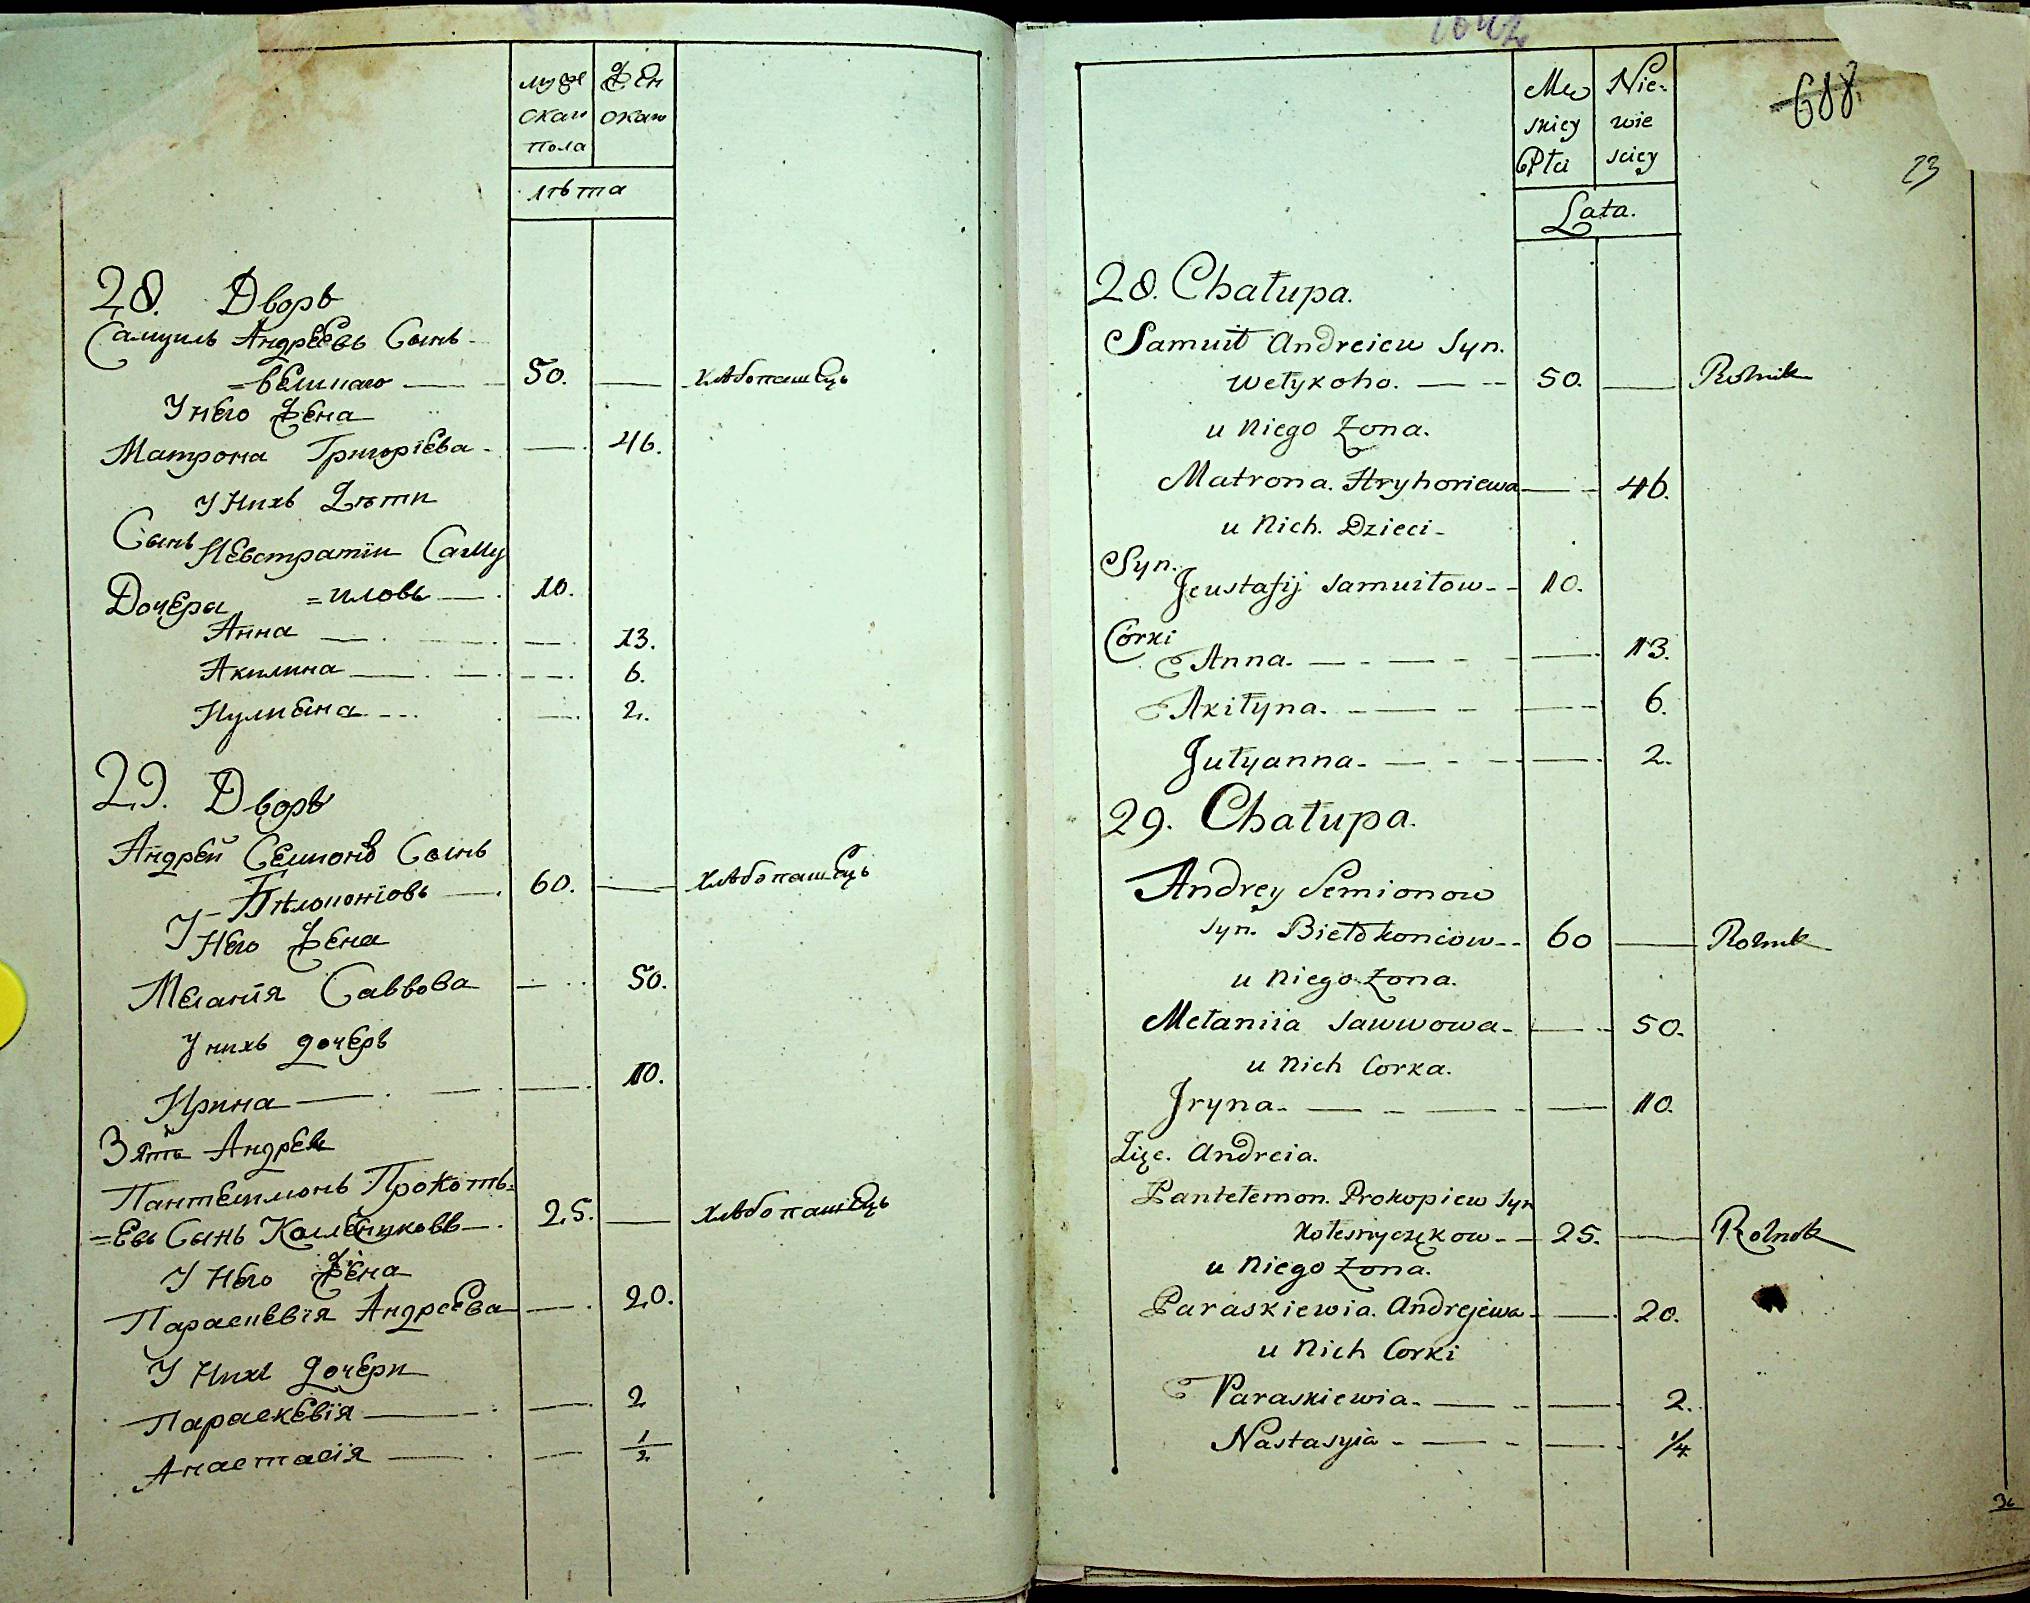 муже
скаго
пола
Жен
скаго
лѣта
28. Дворъ
Самуилъ Андреевъ Сынъ
=великаго — 50. — хлѣбопашецъ
У него Жена
Матрона Григорїева — 46.
У нихъ Дѣти
Сынъ Иевстратїи Саму
=иловъ — 10.
Дочери
Анна — 13.
Акилина — 6.
Иулиана — 2.
29. Дворъ
Андрей Семионовъ Сынъ
Бѣлоконїовъ — 60. — хлѣбопашецъ
У него Жена
Меланїя Саввова — 50.
У нихъ дочерь
Ирина — 10.
Зять Андрея
Пантелимонъ Прокопь=
=евъ Сынъ — 25. — хлѣбопашецъ
У него Жена
Параскевїя Андреева — 20.
У нихъ Дочери
Параскевїя — 2
Анастасїя — 1/2
Mę
skiey
Płci
Nie-
wie
sciey
Lata.
688.
23
28. Chałupa.
Samuił Andreiew Syn.
Wełykoho. — 50. — Rolnik
u Niego Zona.
Matrona. Hryhoriewa — 46.
u Nich. Dzieci-
Syn.
Jeustafij Samuiłow — 10.
Córki
Anna. — 13.
Akiłyna. — 6.
Jułyanna. — 2.
29. Chałupa.
Andrey Semionow
Syn. Biełokoniow — 60 — Rolnik
u Niego Zona.
Mełaniia Sawwowa — 50.
u Nich Corka.
Jryna. — 10.
Zięc. Andreia.
Pantełemon. Prokopiew Syn
Kołesnyczkow — 25. — Rolnik
u Niego Zona.
Paraskiewia. Andrejewa — 20.
u Nich Corki
Paraskiewia. — 2.
Nastasyia — 1/4